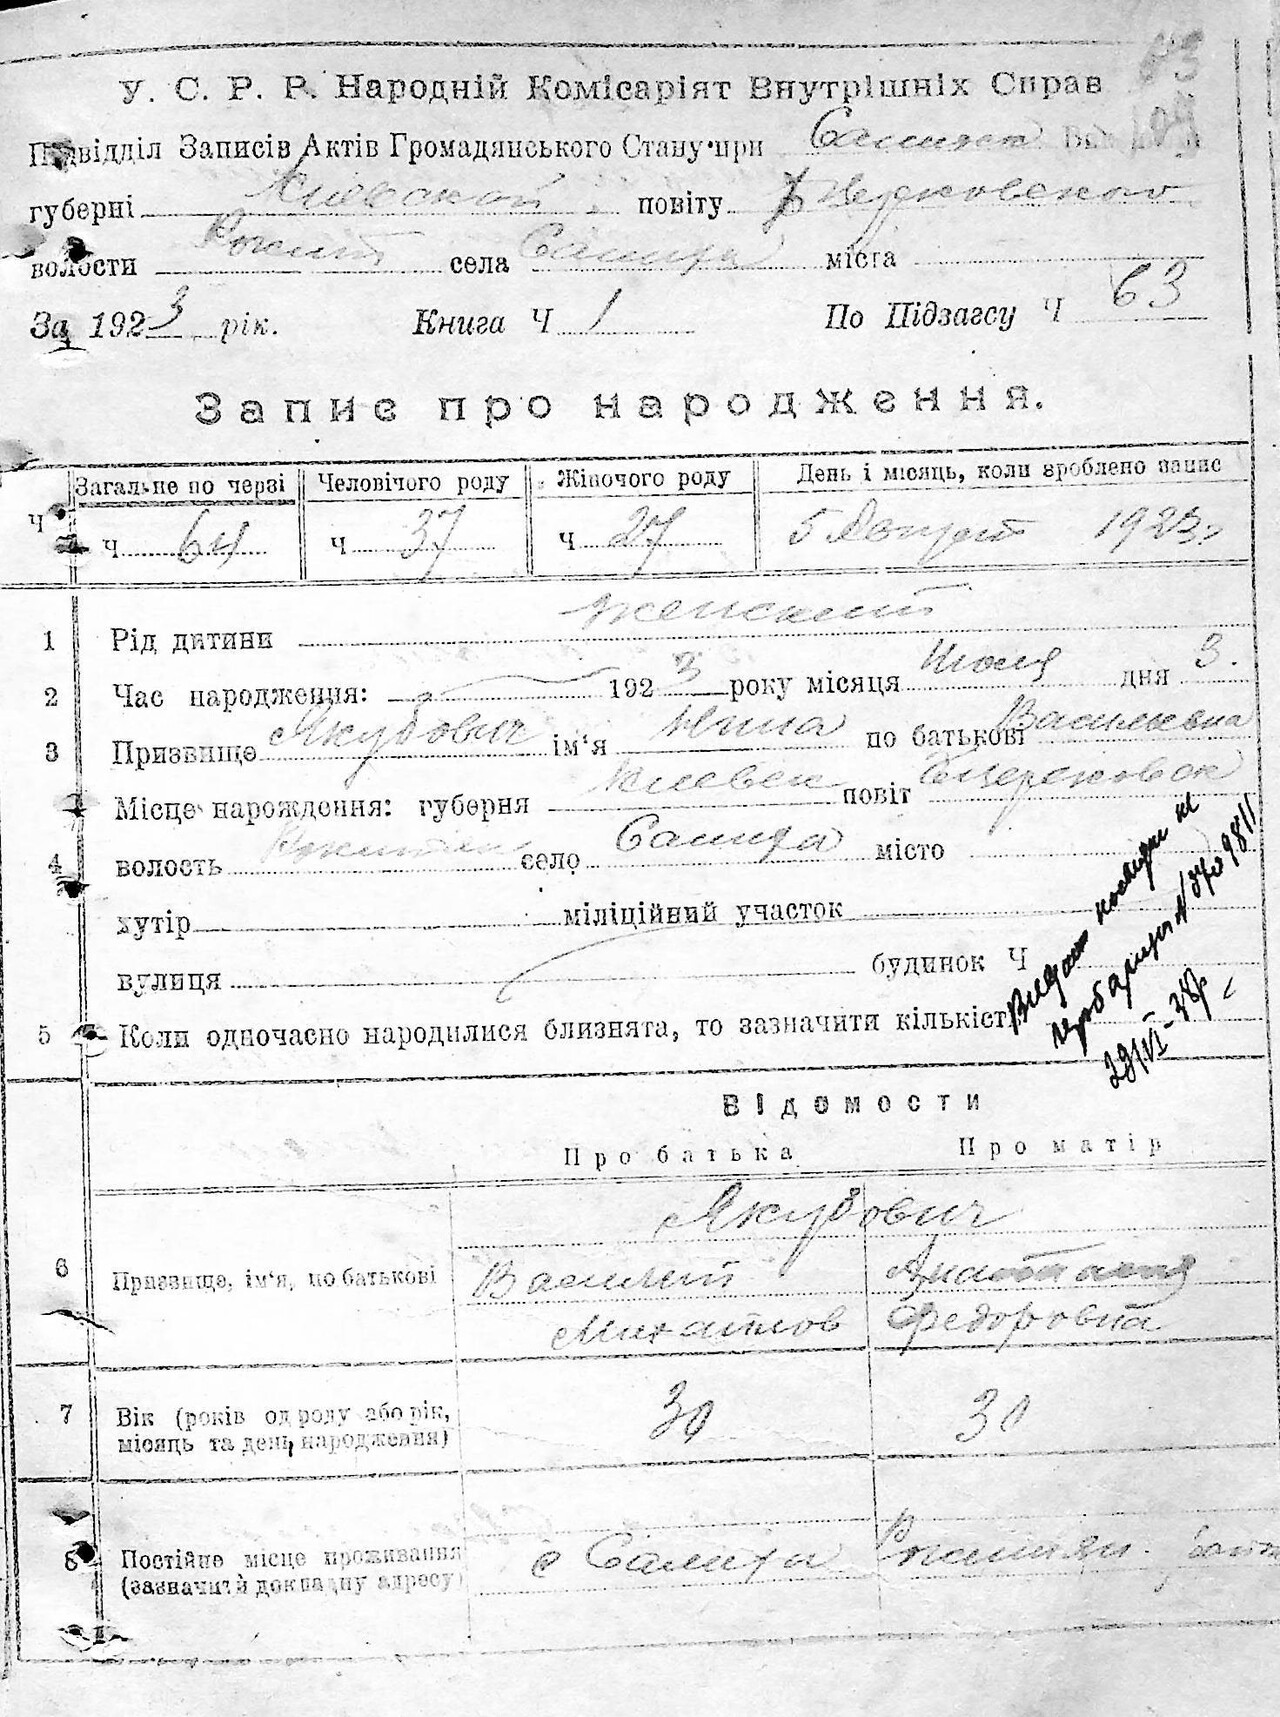 У. С. Р. Р. Народній Комісаріят Внутрішніх Справ
Підвідділ Записів Актів Громадянського Стану при
губерні Киевской повіту Бцерковского
волости Рокит села Салиха міста
За 1923 рік. Книга Ч 1 По Підзагсу Ч 63
Запис про народження.
Загальне по черзі Человічого роду Жіночого роду День і місяць, коли зроблено запис
Ч Ч 64 Ч 37 Ч 27 5 Август 1923 г.
1 Рід дитини женский
2 Час народження: 1923 року місяця Июля дня 3.
3 Призвище Якубович ім'я Нина по батькові Васильевна
Місце нарождення: губерня Киевск повіт Бцерковск
4 волость село Салиха місто
хутір міліційний участок
вулиця будинок Ч
5 Коли одночасно народилися близнята, то зазначити кількіст
29/VI-38р
Відомости
Про батька Про матір
Якубович
6 Призвище, ім'я, по батькові Василий Анастасия
Михайлов Федоровна
7 Вік (років од роду або рік, 30 30
місяць та день народження)
8 Постійне місце проживання с Салиха
(зазначити докладну адресу)